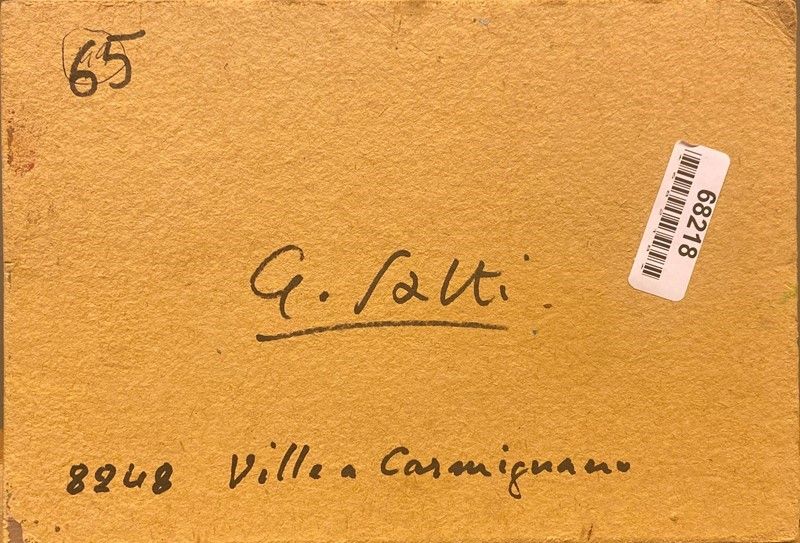 65
68218
G. Salti.
8248 Ville a Carmignano